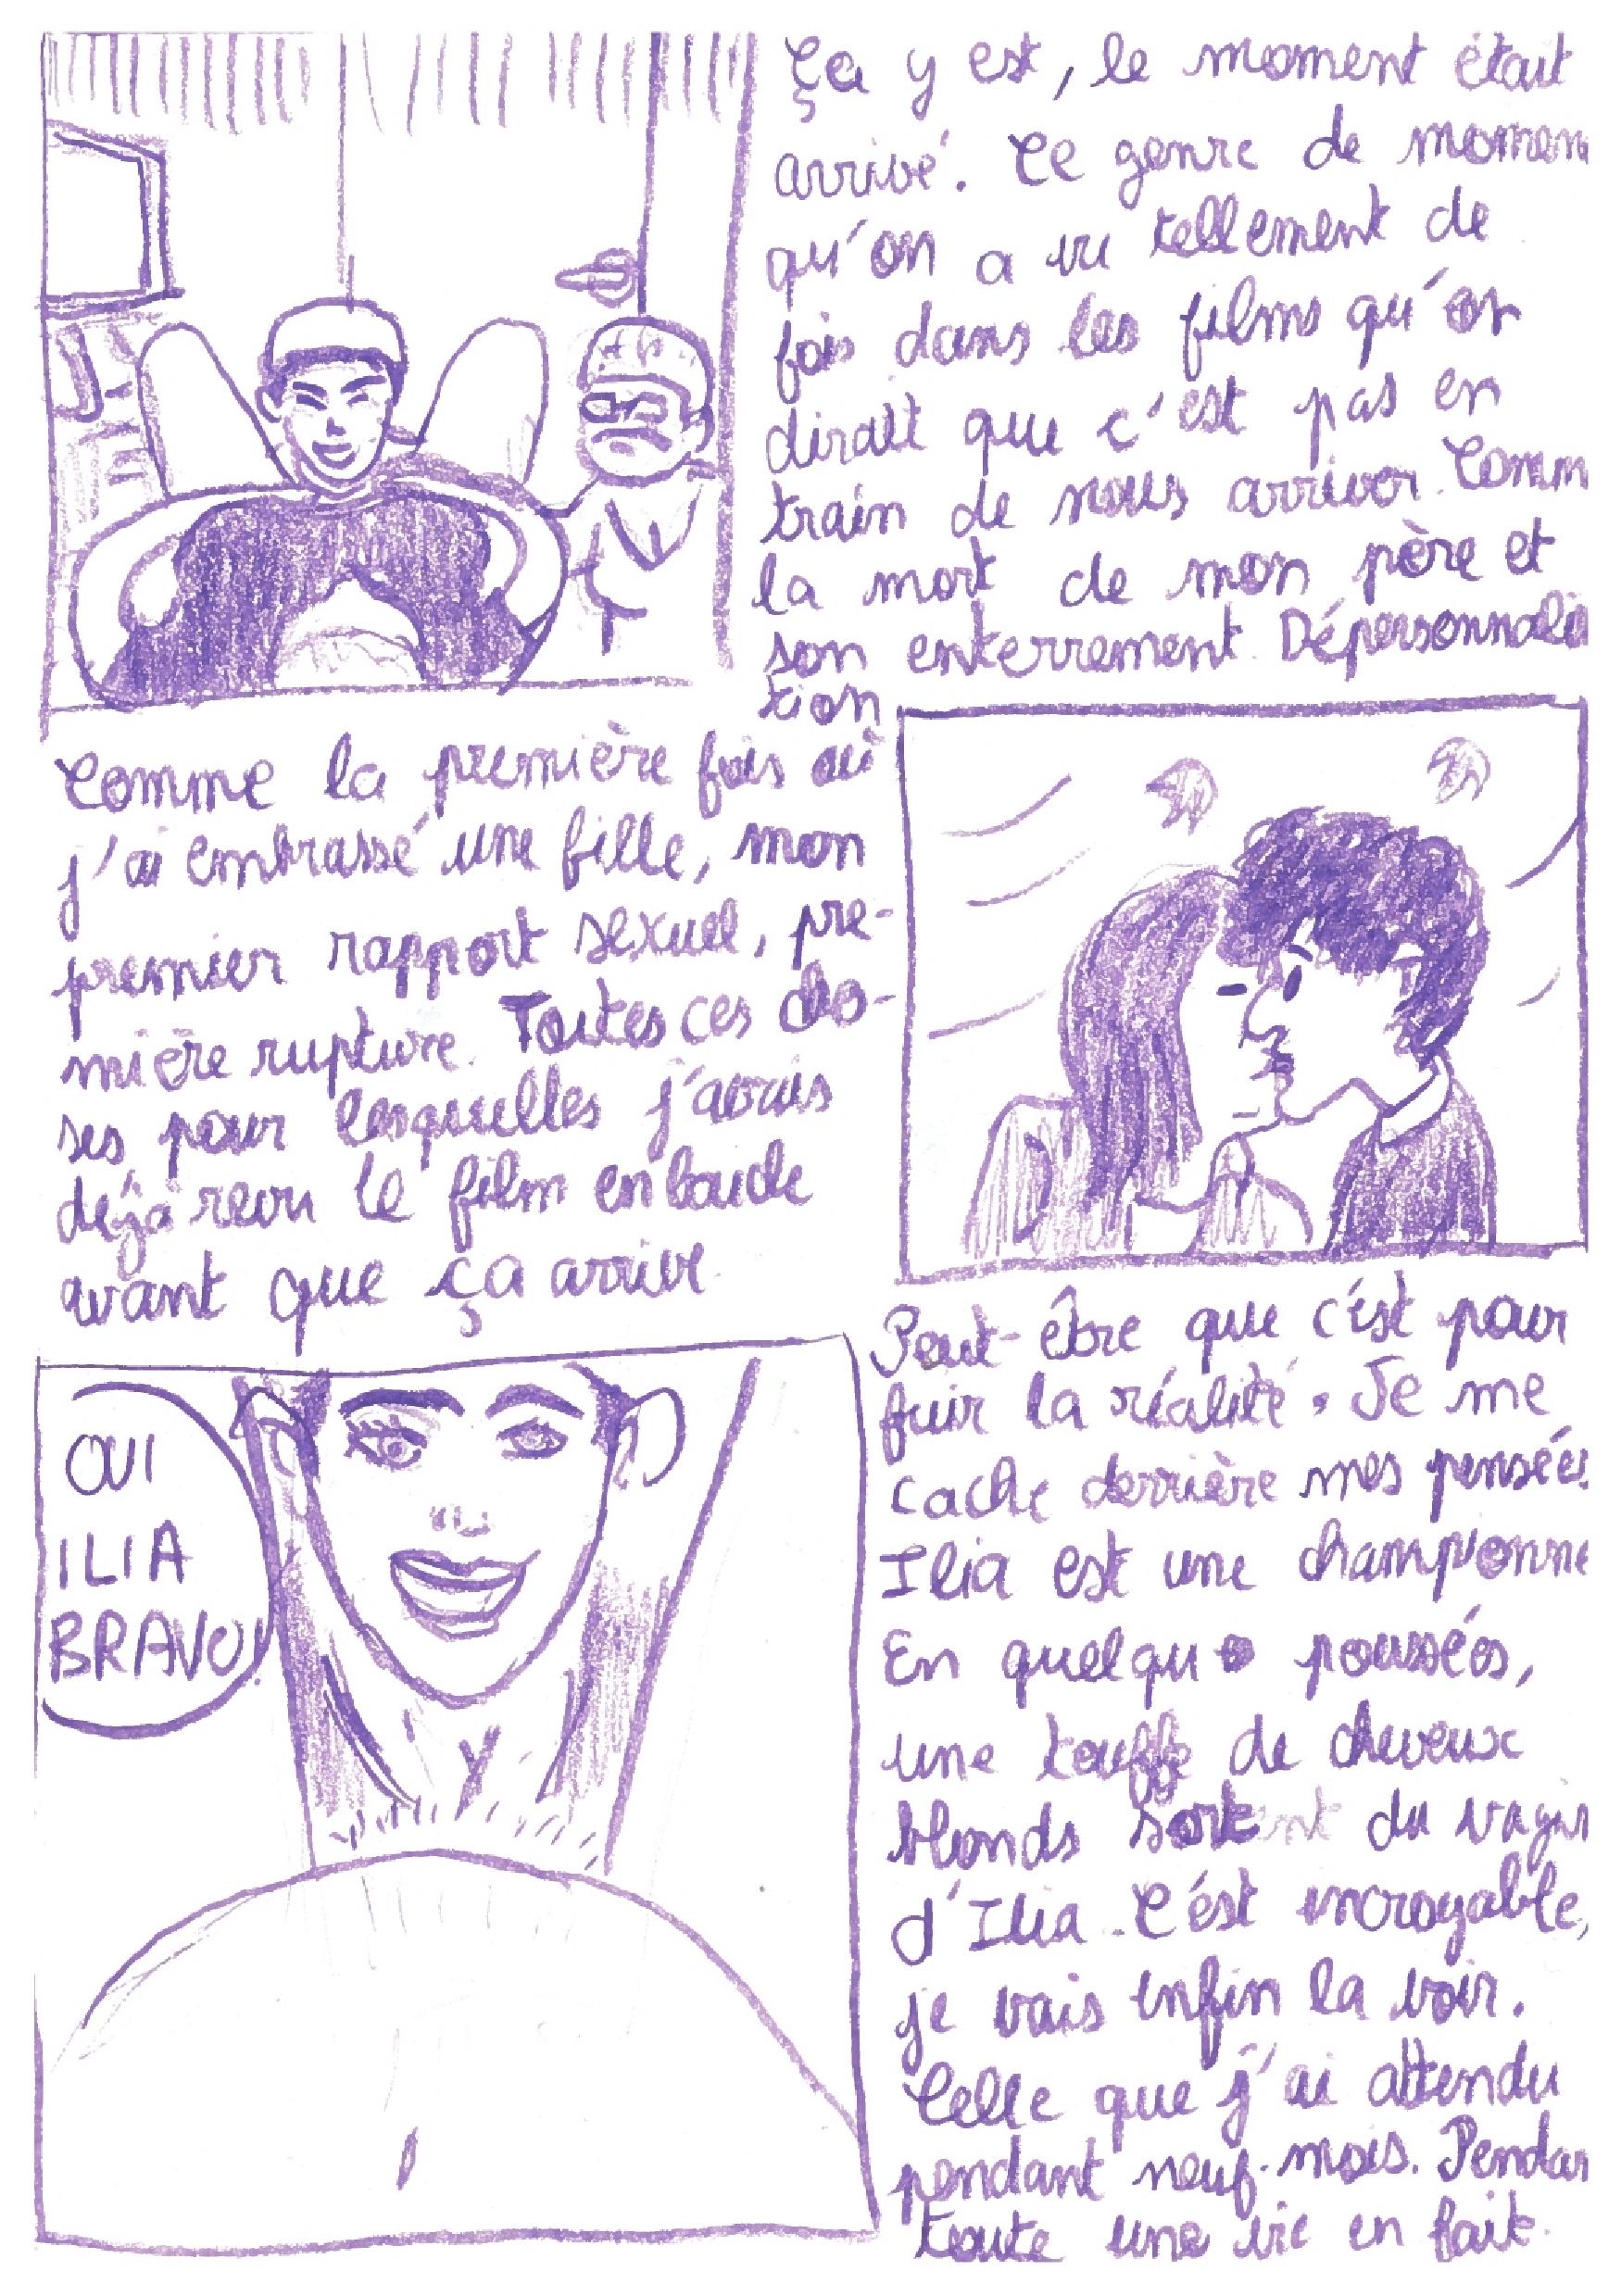 Ça y est, le moment était
arrivé. Ce genre de momen
qu'on a vu tellement de
fois dans les films qu'on
dirait que c'est pas en
train de nous arriver. Comm
la mort de mon père et
son enterrement. Dépersonnali
tion
Comme la première fois où
j'ai embrassé une fille, mon
premier rapport sexuel, pre-
mière rupture. Toutes ces cho-
ses pour lesquelles j'avais
déjà revu le film en boucle
avant que ça arrive.
OUI
ILIA
BRAVO!
Peut-être que c'est pour
fuir la réalité. Je me
cache derrière mes pensées
Ilia est une championne
En quelques poussées,
une touffe de cheveux
blonds sortent du vagin
d'Ilia. C'est incroyable,
je vais enfin la voir.
Celle que j'ai attendu
pendant neuf mois. Pendan
toute une vie en fait.